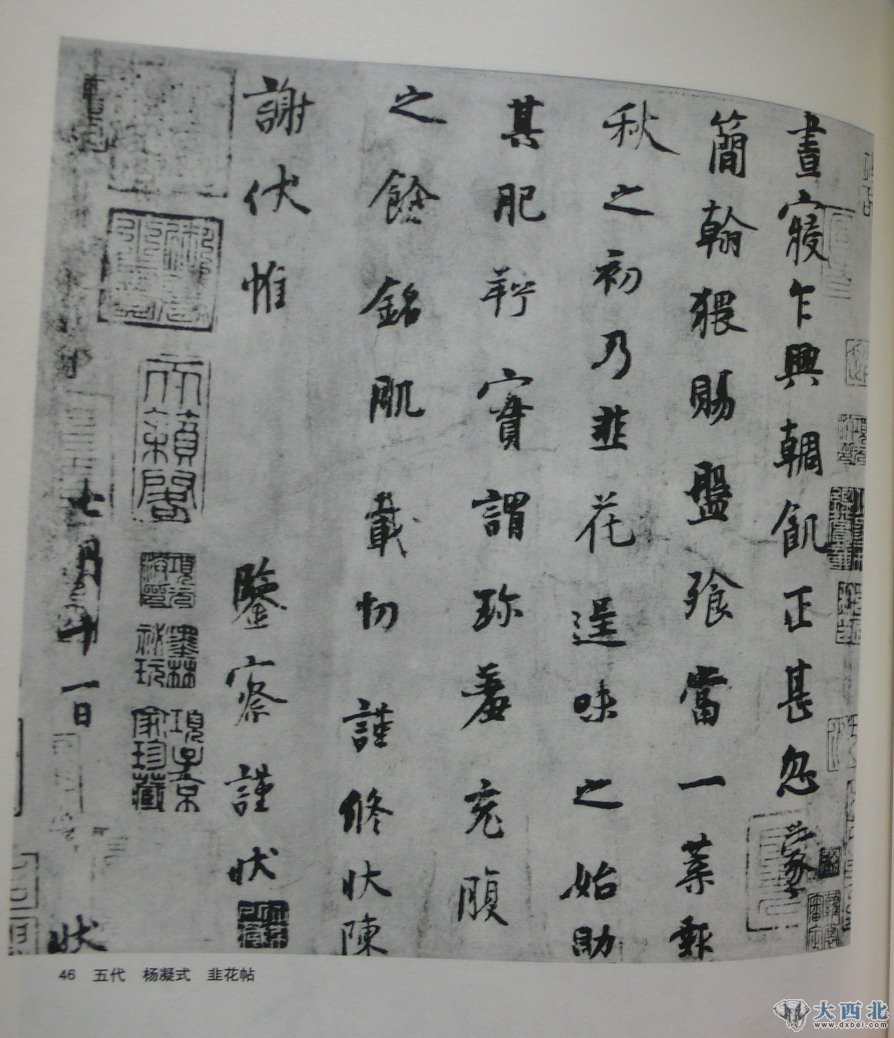 晝寢乍興輖飢正甚忽蒙
簡翰猥賜盤飧當一葉報
秋之初乃韭花逞味之始助
其肥羜實謂珎羞充腹
之餘銘肌載切謹修狀陳
謝伏惟鑒察謹狀
天籟閣
墨林祕玩
項子京家珍藏
七月十一日狀
46 五代 杨凝式 韭花帖
大西北
www.dxbei.com